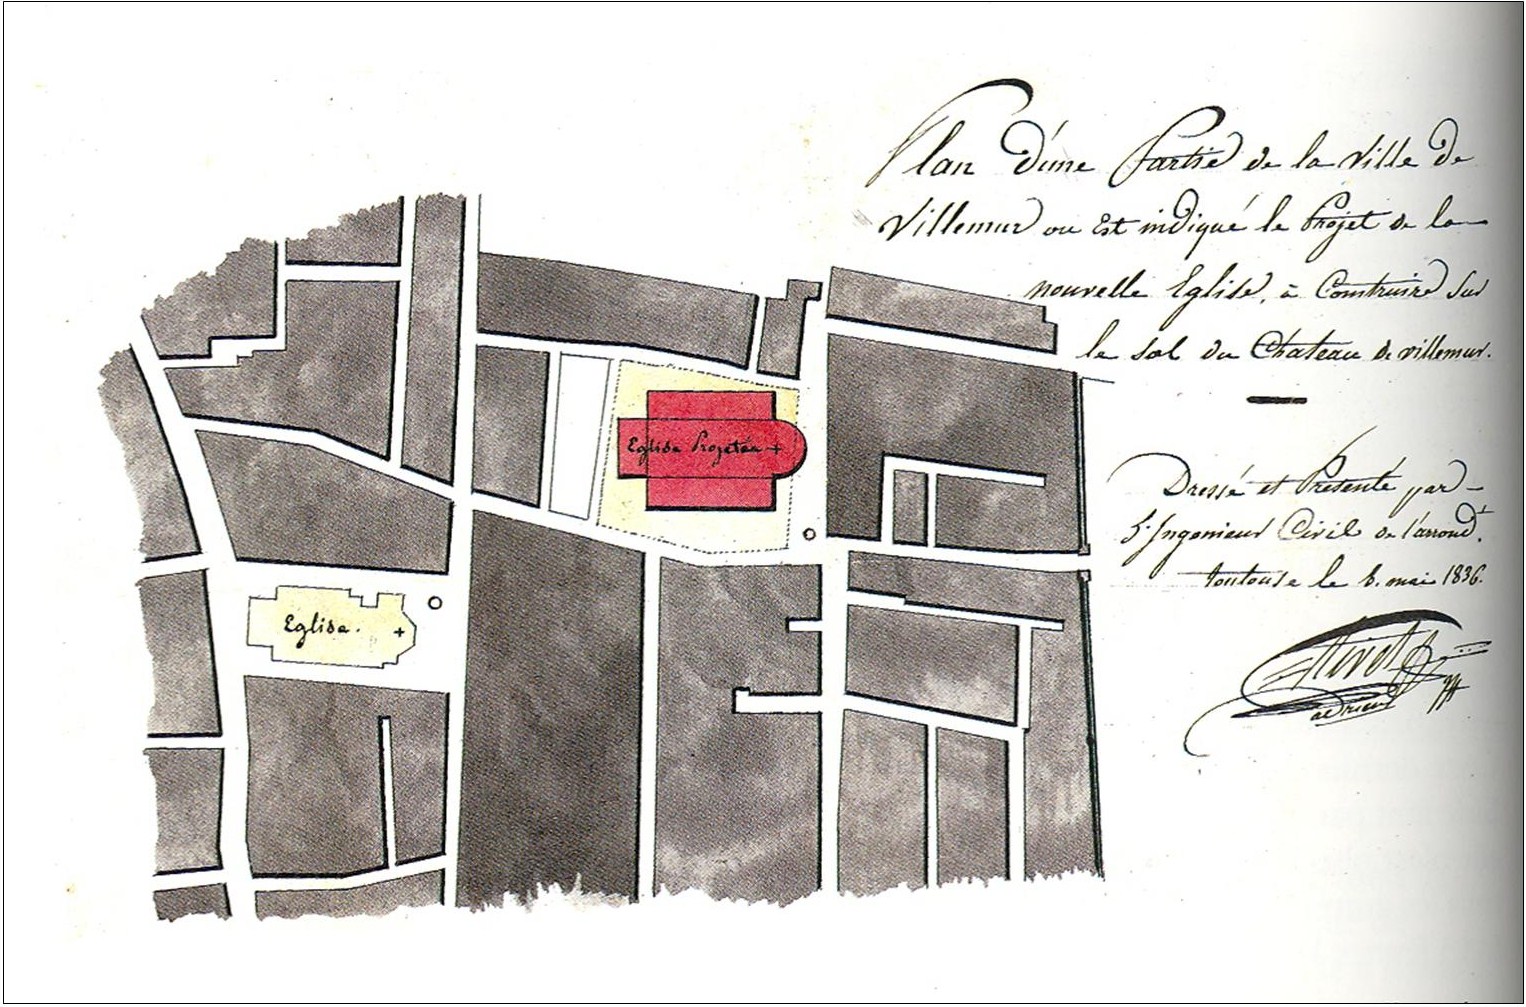 Plan d'une Partie de la Ville de
Villemur ou Est indiqué le Projet de la
nouvelle Eglise, à Construire Sur
le sol du Chateau de villemur.
Dressé et Présenté par
l'Ingenieur Civil de l'arrond.t
toulouse le 8. mai 1836.
Eglise Projetée +
Eglise. +